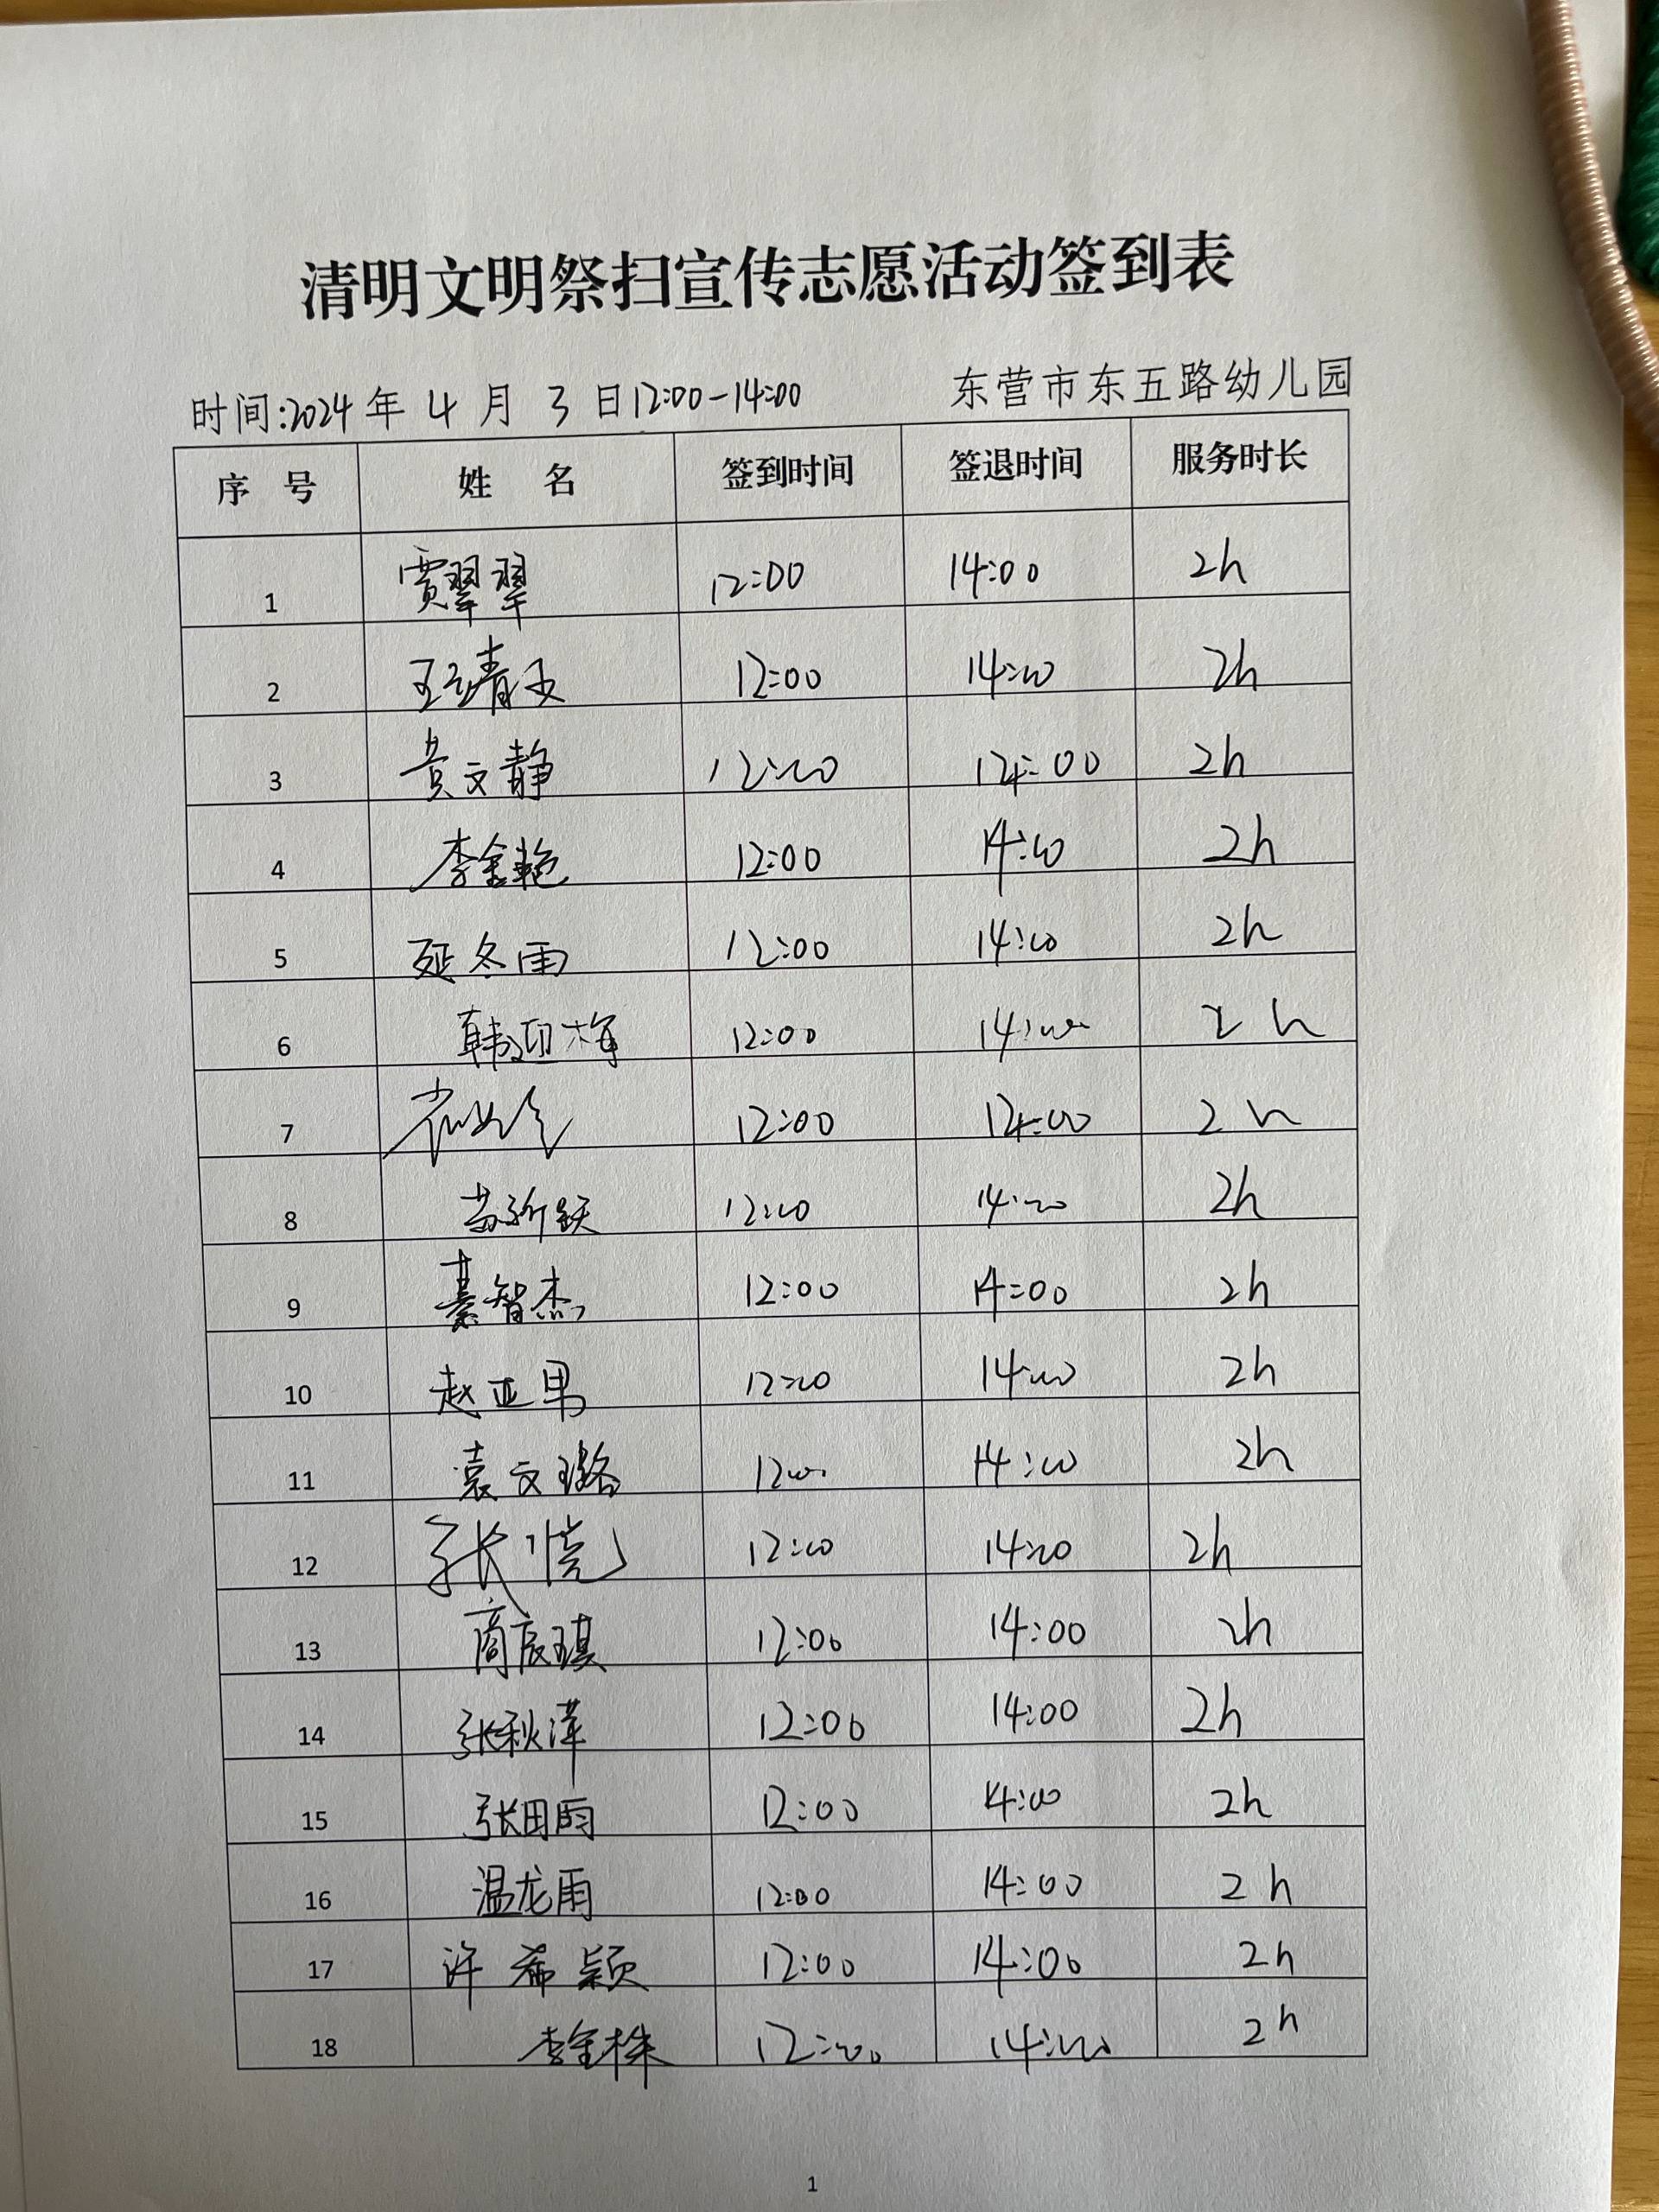 清明文明祭扫宣传志愿活动签到表
时间:2024年 4 月 3 日12:00-14:00 东营市东五路幼儿园
序 号 姓 名 签到时间 签退时间 服务时长
1 贾翠翠 12:00 14:00 2h
2 王 12:00 14:00 2h
3 黄文静 12:00 14:00 2h
4 李金艳 12:00 14:00 2h
5 延冬雨 12:00 14:00 2h
6 韩迎梅 12:00 14:00 2h
7 12:00 14:00 2h
8 跃 12:00 14:00 2h
9 綦智杰 12:00 14:00 2h
10 赵亚男 12:00 14:00 2h
11 袁文璐 12:00 14:00 2h
12 张 12:00 14:00 2h
13 商辰琪 12:00 14:00 2h
14 张秋萍 12:00 14:00 2h
15 张田雨 12:00 14:00 2h
16 温龙雨 12:00 14:00 2h
17 许希颖 12:00 14:00 2h
18 李金株 12:00 14:00 2h
1